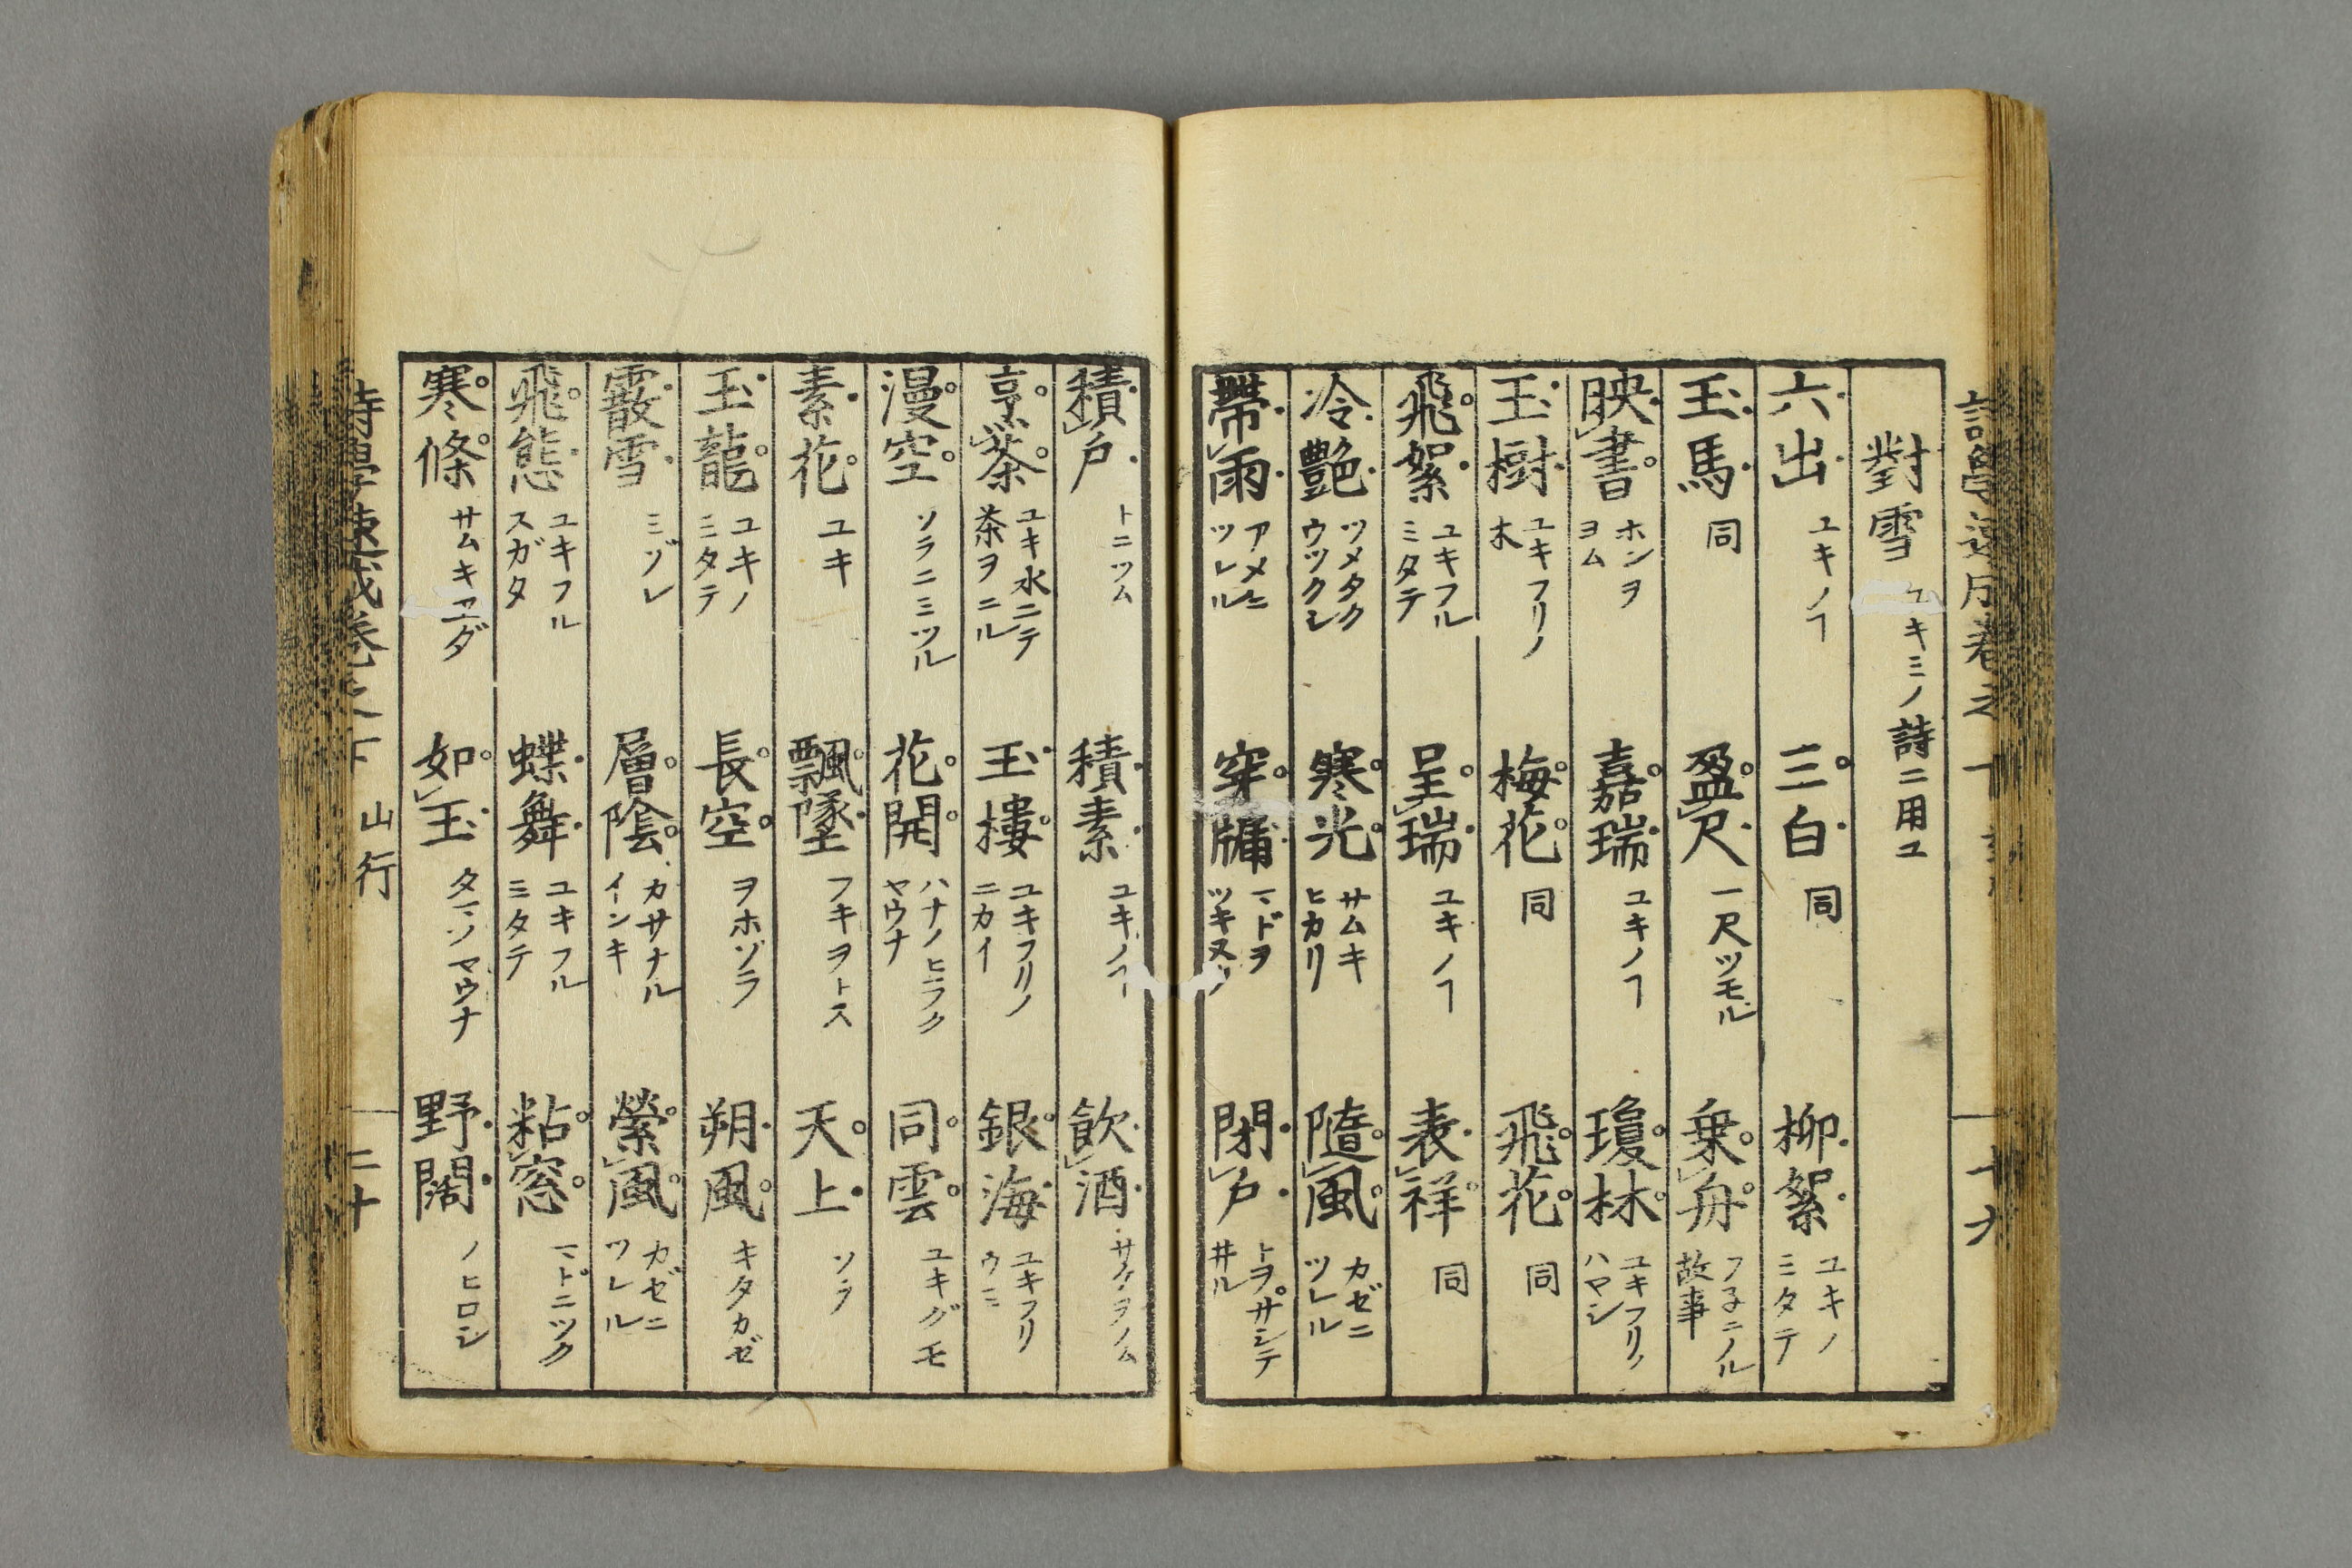 對雪 ユキミノ詩ニ用ユ
六出 ユキノヿ 三白 同 柳絮 ユキノミタテ
玉馬 同 盈尺 一尺ツモル 乗舟 フ子ニノル故事
映書 ホンヲヨム 嘉瑞 ユキノヿ 瓊林 ユキフリノハヤシ
玉樹 ユキフリノ木 梅花 同 飛花 同
飛絮 ユキフルミタテ 呈瑞 ユキノヿ 表祥 同
冷艷 ツメタクウツクシ 寒光 サムキヒカリ 隨風 カゼニツレル
帶雨 アメニツレル 穿牖 マドヲツキヌク 閉戶 トヲサシテ井ル
積戶 トニツム 積素 ユキノヿ 飲酒 サケヲノム
烹茶 ユキ水ニテ茶ヲニル 玉樓 ユキフリノニカイ 銀海 ユキフリウミ
漫空 ソラニミツル 花開 ハナノヒラクヤウナ 同雲 ユキグモ
素花 ユキ 飄墜 フキヲトス 天上 ソラ
玉龍 ユキノミタテ 長空 ヲホゾラ 朔風 キタカゼ
霰雪 ミゾレ 層陰 カサナルインキ 縈風 カゼニツレル
飛態 ユキフルスガタ 蝶舞 ユキフルミタテ 粘窓 マドニツク
寒條 サムキヱダ 如玉 タマノヤウナ 野闊 ノヒロシ
詩學速成卷之下 山行 二十